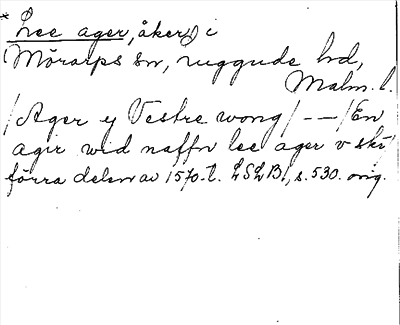 * Lee ager, åker i
Mörarps sn, Luggude hd,
Malm. l.
/Ager y Vestre wong/ — — /En
agir wid naffn lee ager v ski/
förra delen av 1570-t. LSLB1, s. 530. orig.